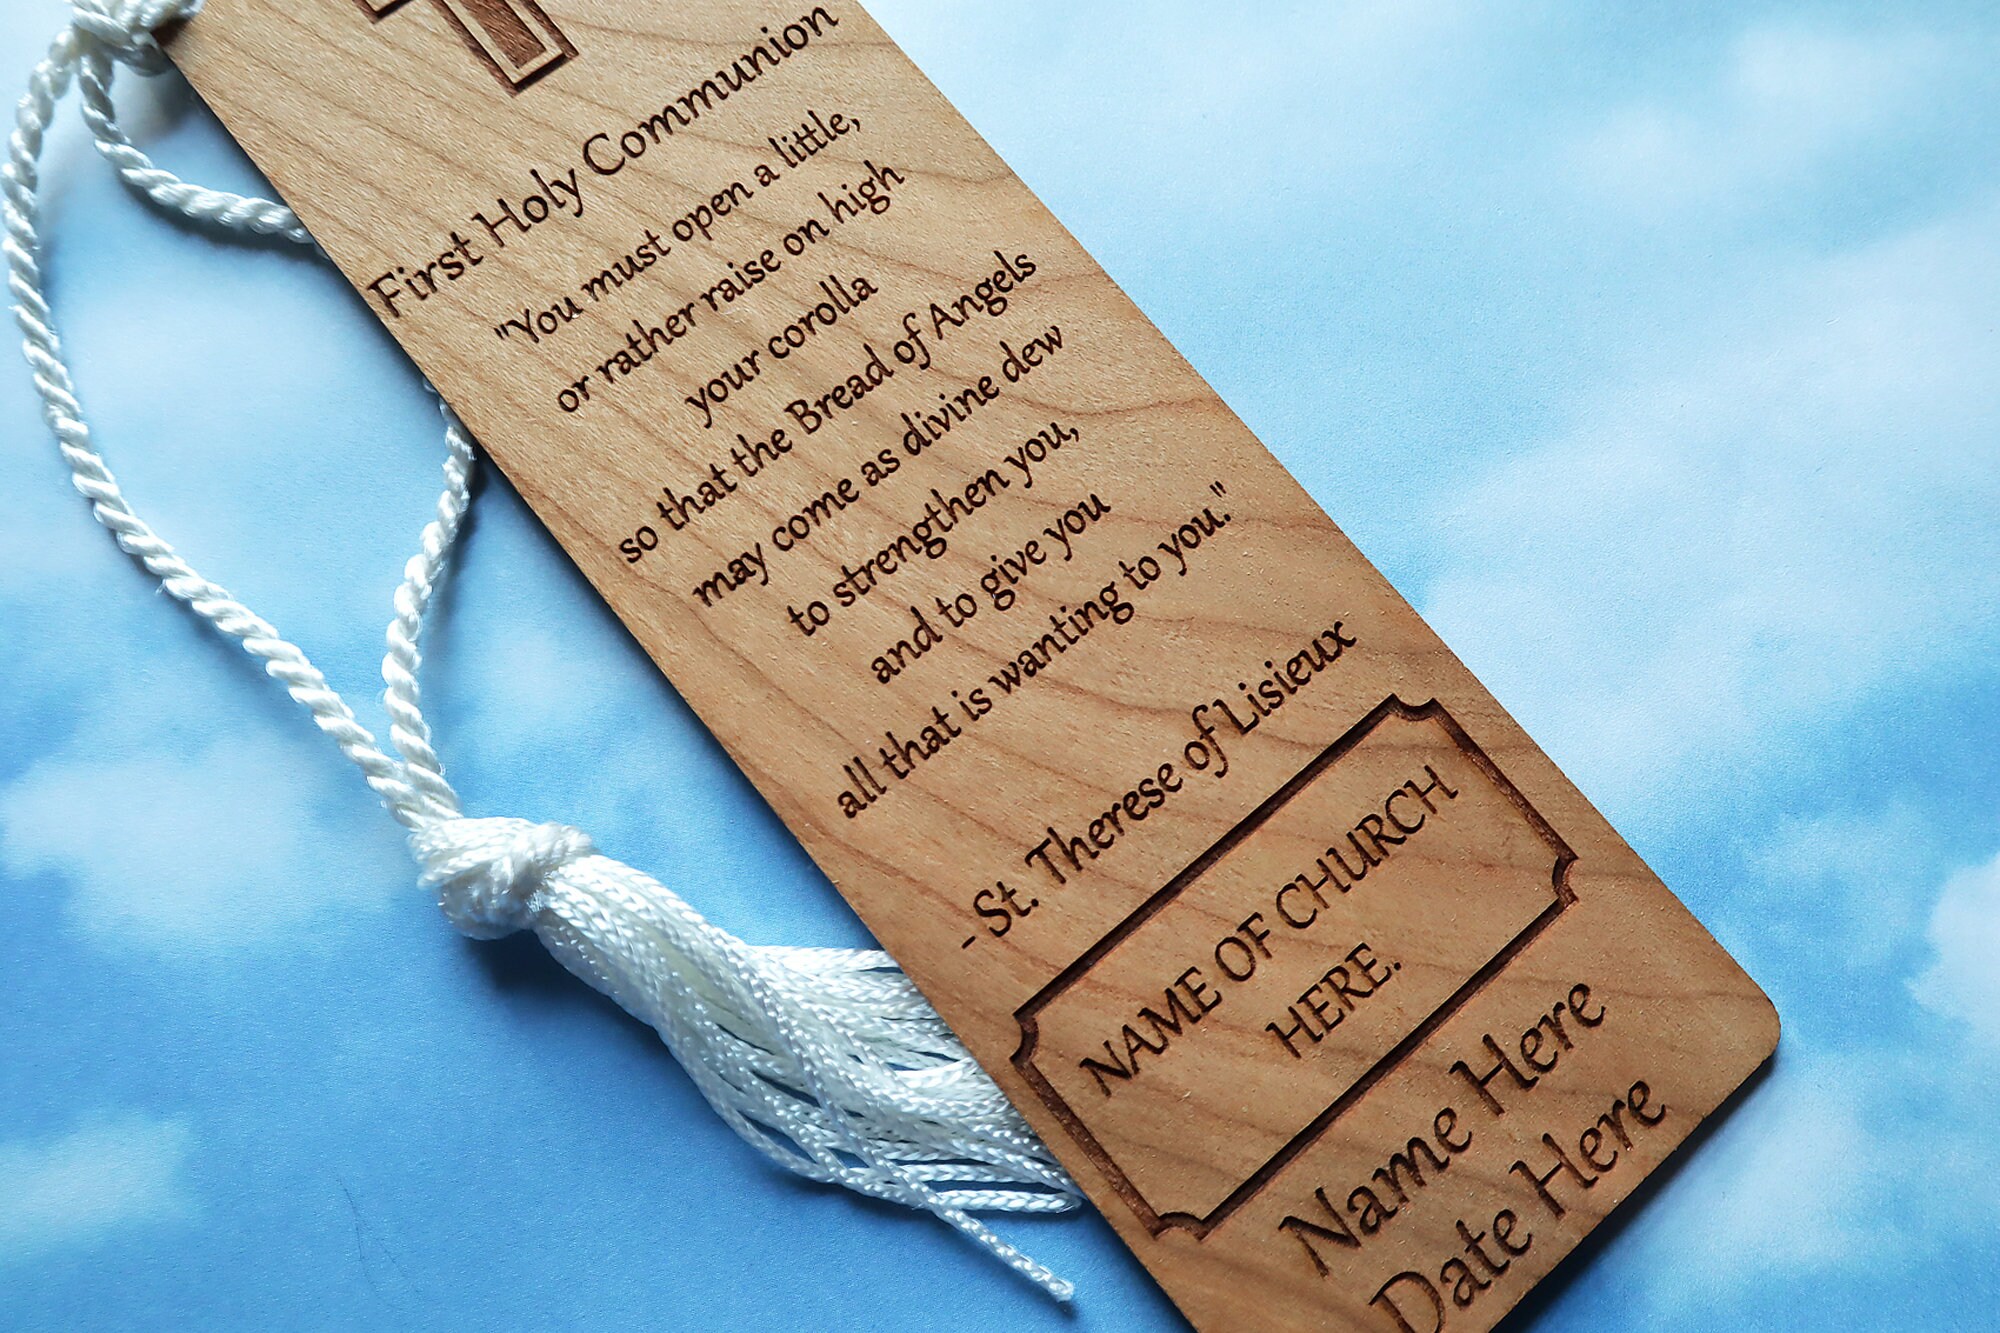 First Holy Communion
"You must open a little,
or rather raise on high
your corolla
so that the Bread of Angels
may come as divine dew
to strengthen you,
and to give you
all that is wanting to you."
- St. Therese of Lisieux
NAME OF CHURCH
HERE.
Name Here
Date Here